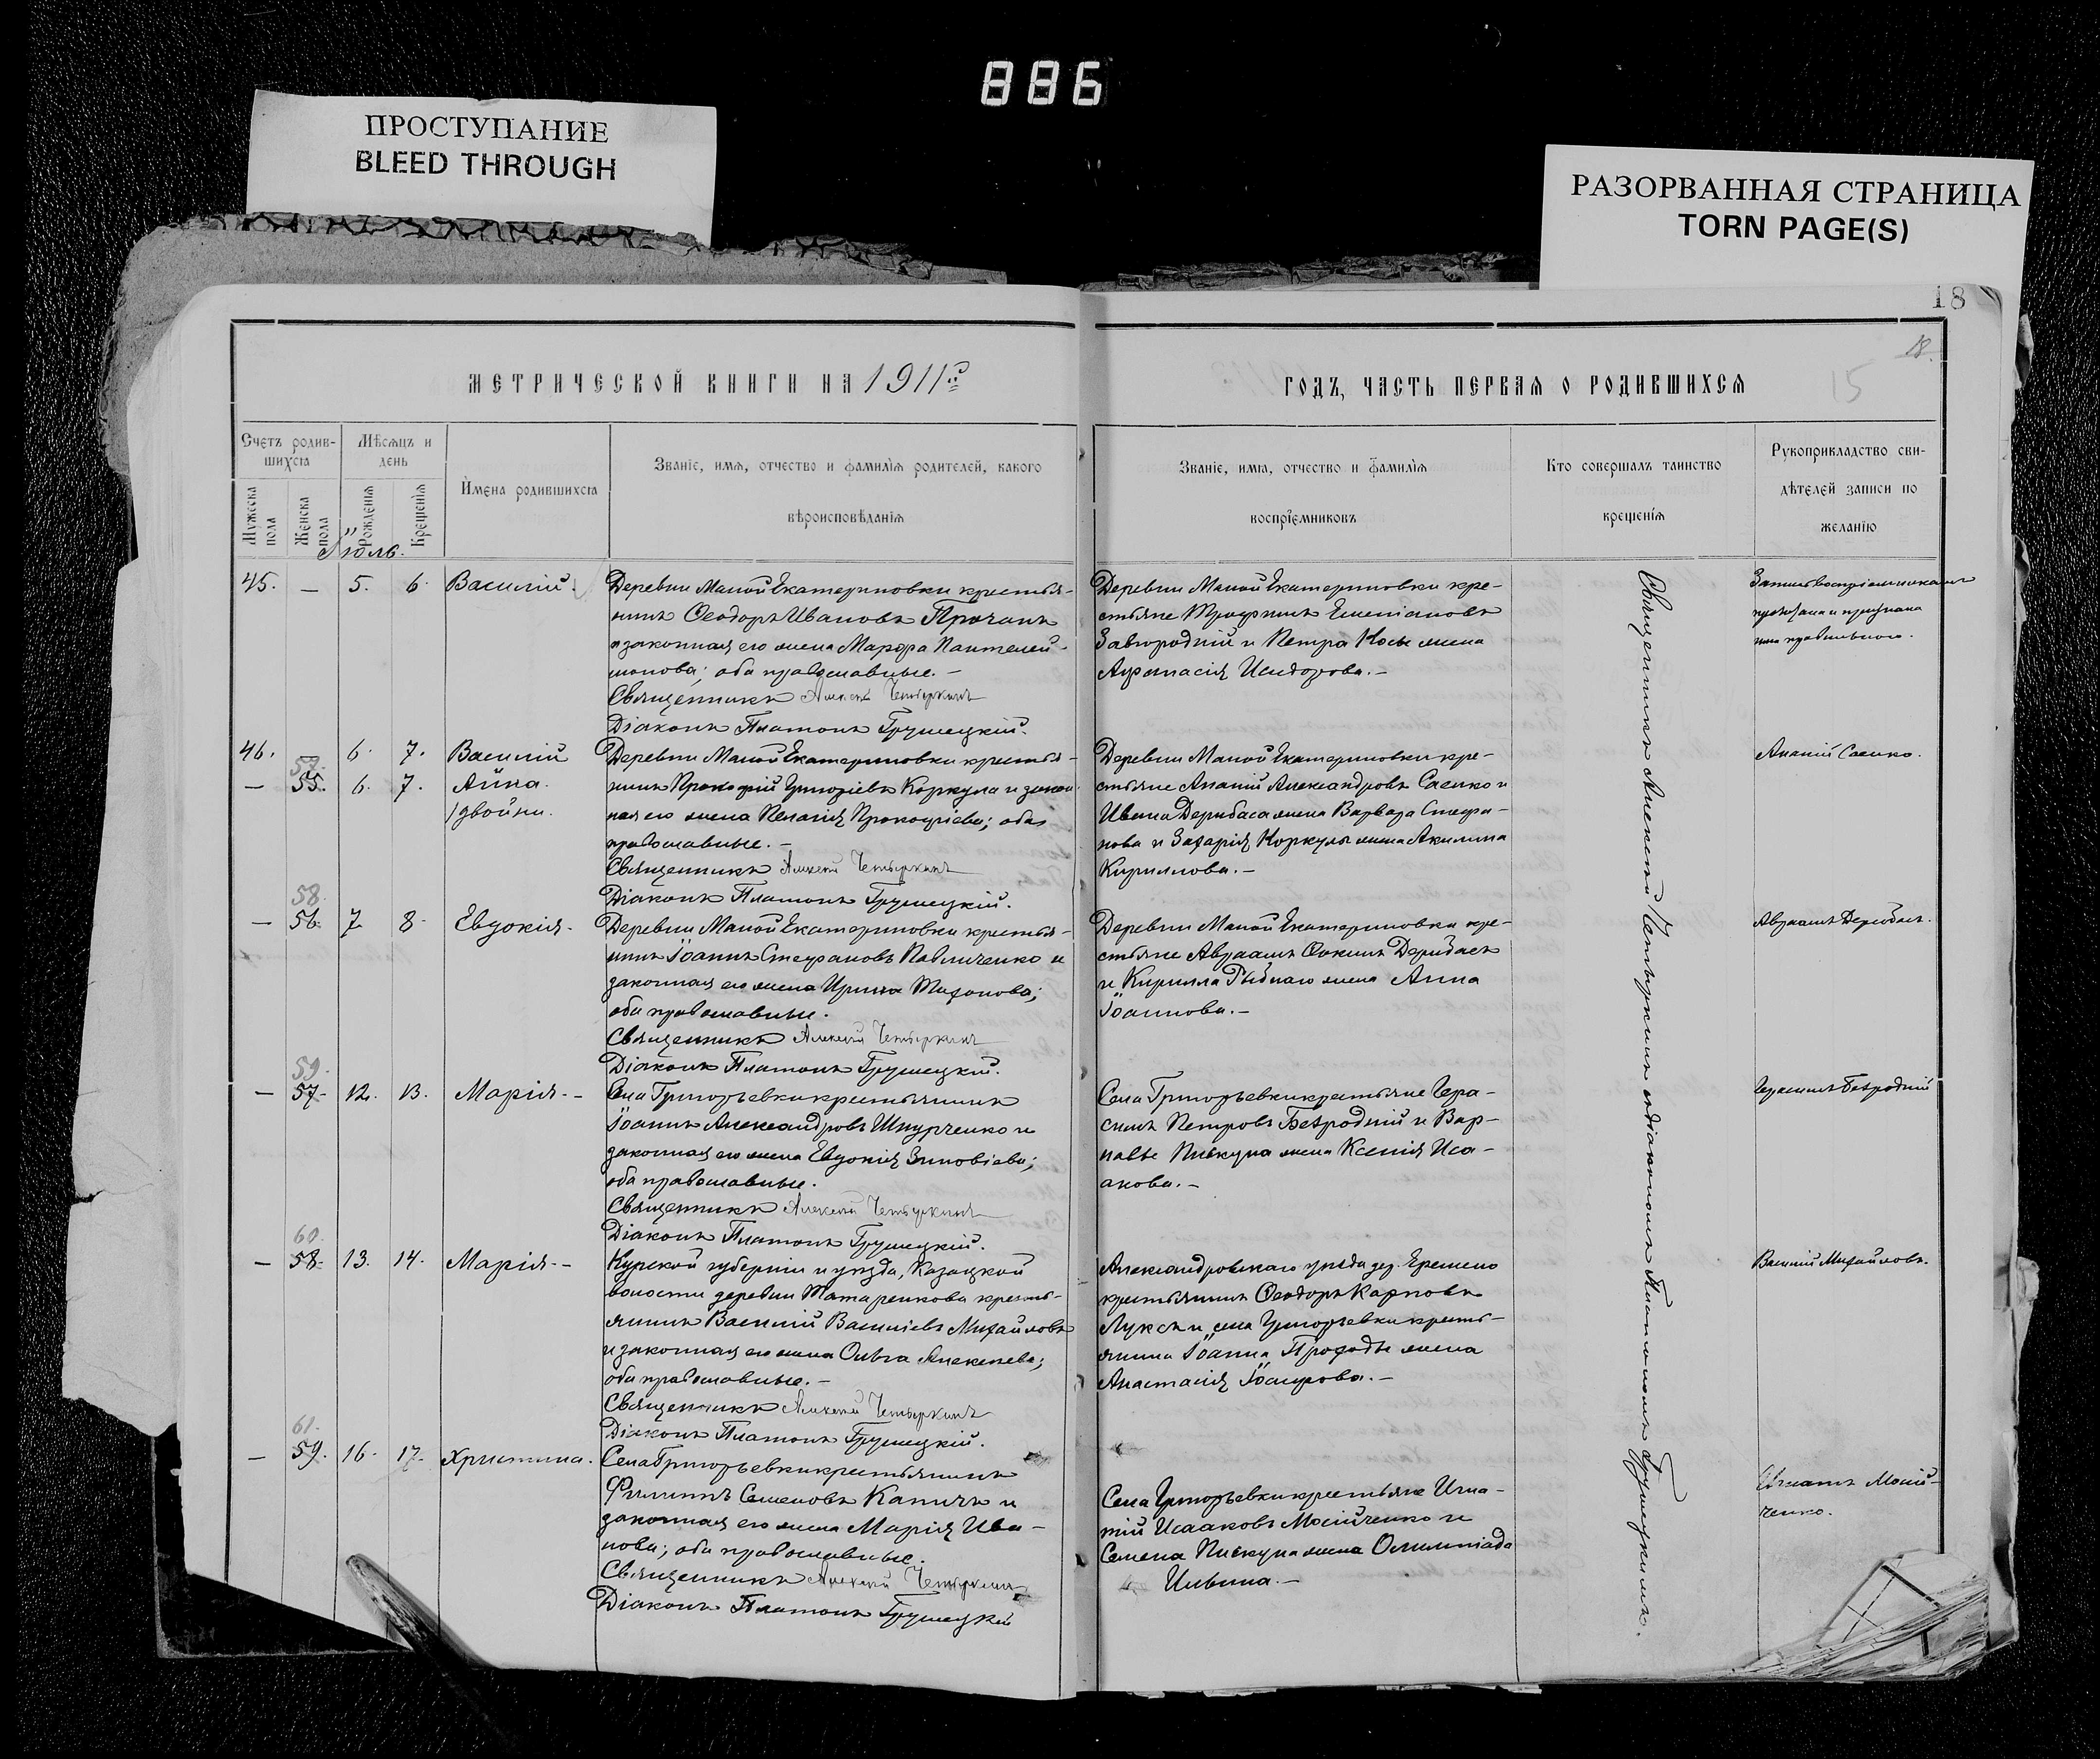 886
ПРОСТУПАНИЕ
BLEED THROUGH
РАЗОРВАННАЯ СТРАНИЦА
TORN PAGE(S)
18
18.
15
МЕТРИЧЕСКОЙ КНИГИ НА 1911 г.
ГОДЪ, ЧАСТЬ ПЕРВАЯ О РОДИВШИХСЯ
Счетъ родив-
шихся
Мужеска пола
Женска пола
Мѣсяцъ и
день
Рожденія
Крещенія
Имена родившихся
Званіе, имя, отчество и фамилія родителей, какого
вѣроисповѣданія
Званіе, имя, отчество и фамилія
воспріемниковъ
Кто совершалъ таинство
крещенія
Рукоприкладство сви-
дѣтелей записи по
желанію
Іюль.
45. — 5. 6. Василій.
Деревни Малой Екатериновки крестья-
нинъ Ѳеодоръ Ивановъ
и законная его жена Марѳа Пантелей-
монова; оба православные. —
Священникъ Алексѣй Четыркинъ
Діаконъ Платонъ Грушецкій.
Деревни Малой Екатериновки кре-
стьяне Трофимъ Емеліановъ
Завгородній и Петра Косы жена
Афанасія Исидорова. —
46. — 6. 7. Василій
57.
— 55. 6. 7. Анна.
/двойни.
Деревни Малой Екатериновки крестья-
нинъ Прокофій Григоріевъ Коркула и закон-
ная его жена Пелагія Прокофіева; оба
православные. —
Священникъ Алексѣй Четыркинъ
Діаконъ Платонъ Грушецкій.
Деревни Малой Екатериновки кре-
стьяне Ананій Александровъ Саенко и
Ивана Дерибаса жена Варвара Стефа-
нова и Захарія Коркулы жена Акилина
Кириллова. —
Ананій Саенко.
58.
— 56. 7. 8. Евдокія.
Деревни Малой Екатериновки крестья-
нинъ Іоаннъ Стефановъ Павличенко и
законная его жена Ирина Тихонова;
оба православные.
Священникъ Алексѣй Четыркинъ
Діаконъ Платонъ Грушецкій.
Деревни Малой Екатериновки кре-
стьяне Авраамъ Ѳокинъ Дерибасъ
и Кирилла Рыбнаго жена Анна
Іоаннова. —
Авраамъ Дерибасъ.
59.
— 57. 12. 13. Марія. —
Села Григорьевки крестьянинъ
Іоаннъ Александровъ Шкурченко и
законная его жена Евдокія Зиновіева;
оба православные.
Священникъ Алексѣй Четыркинъ
Діаконъ Платонъ Грушецкій.
Села Григорьевки крестьяне Гера-
симъ Петровъ Безродній и Вар-
навы Пискуна жена Ксенія Иса-
акова. —
Герасимъ Безродній
60.
— 58. 13. 14. Марія. —
Курской губерніи и уѣзда, Казацкой
волости деревни Татаренкова кресть-
янинъ Василій Василіевъ Михайловъ
и законная его жена Ольга Алексѣева;
оба православные. —
Священникъ Алексѣй Четыркинъ
Діаконъ Платонъ Грушецкій.
Александровскаго уѣзда дер. Еремено
крестьянинъ Ѳеодоръ Карповъ
и села Григорьевки кресть-
янина Іоанна жена
Анастасія. —
Василій Михайловъ.
61.
— 59. 16. 17. Христина.
Села Григорьевки крестьянинъ
Филиппъ Семеновъ Капичъ и
законная его жена Марія Ива-
нова; оба православные.
Священникъ Алексѣй Четыркинъ
Діаконъ Платонъ Грушецкій
Села Григорьевки крестьяне Игна-
тій Исааковъ Мосійченко и
Семена Пискуна жена Олимпіада
Ильина. —
Игнатъ Мосій-
ченко.
Священникъ Алексѣй Четыркинъ съ діакономъ Платономъ Грушецкимъ.